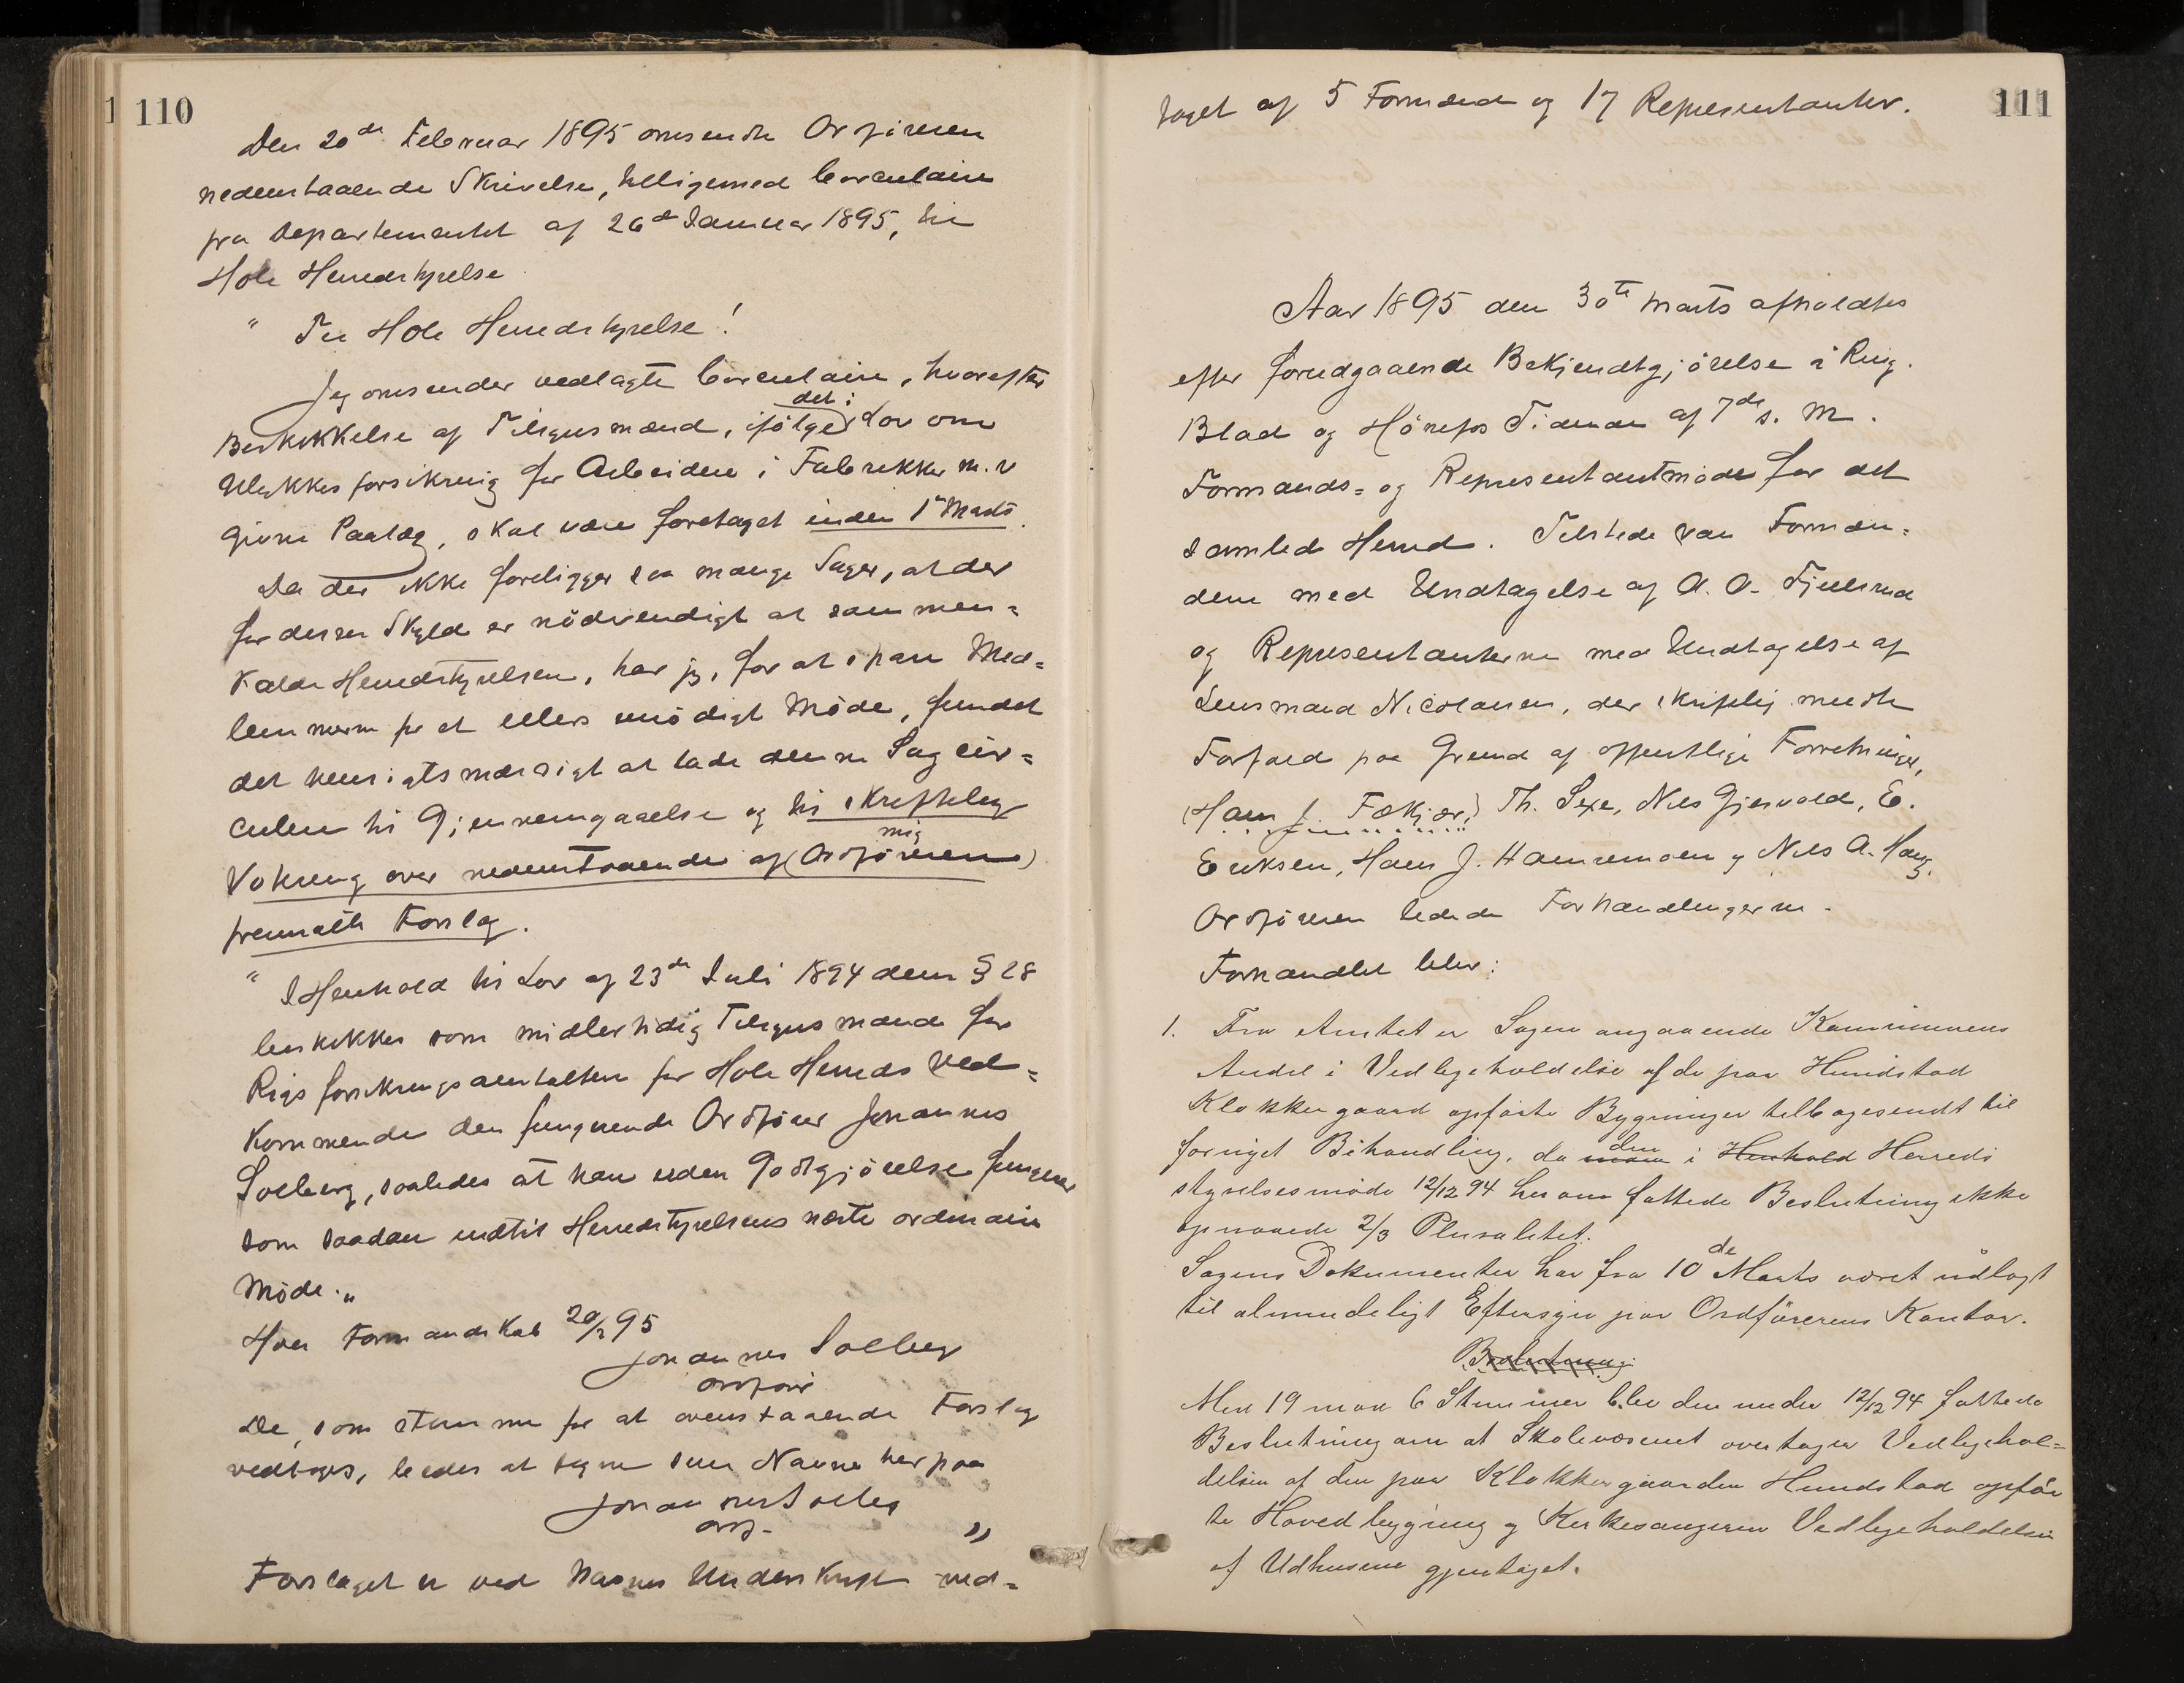 110
Den 20de Februar 1895 omsendte Ordföreren
nedenstaaende Skrivelse, tilligemed Circulaire
fra Departementet af 26de Januar 1895, til
Hole Herredstyrelse
" Til Hole Herredstyrelse!
Jeg omsender vedlagte Circulaire, hvorefter
Beskikkelse af Tilsynsmænd, ifölge det i Lov om
Ulykkesforsikring for Arbeidere i Fabrikker m. v
givne Paalæg, skal være foretaget inden 1ste Marts.
Da der ikke foreligger saa mange Sager, at der
for deres Skyld er nödvendigt at sammen=
kalde Herredstyrelsen, har jeg, for at spare Med=
lemmerne for et ellers unödigt Möde, fundet
det hensigtsmæssigt at lade denne Sag cir=
culere til Gjennemgaaelse og til skriftlig
Votering over nedenstaaende af mig (Ordföreren)
fremsatte Forslag.
" I Henhold til Lov af 23de Juli 1894 dens § 28
beskikkes som midlertidig Tilsynsmand for
Rigsforsikringsanstalten for Hole Herreds Ved=
kommende den fungerende Ordförer Johannes
Solberg, saaledes at han uden Godtgjörelse fungerer
som saadan indtil Herredstyrelsens næste ordinaire
Möde."
Hole Formandskab 20/2 95
Johannes Solberg
Ordförer
De, som stemme for at ovenstaaende Forslag
vedtages, bedes at tegne sine Navne herpaa
Johannes Solberg
Ordf. "
Forslaget er ved Navnes Underskrift ved=
111
taget af 5 Formænd og 17 Representanter.
Aar 1895 den 30te Marts afholdtes
efter forudgaaende Bekjendtgjörelse i Ring.
Blad og Hönefos Tidende af 7de s. M.
Formands= og Representantmöde for det
samlede Herred. Tilstede var Formæn=
dene med Undtagelse af A. A. Fjeldsrud
og Representanterne med Undtagelse af
Lensmand Nicolaisen, der skriftlig meldte
Forfald paa Grund af offentlige Forretninger,
(Hans J. Fækjær,) Th. Sexe, Nils Gjesvold, E.
Eriksen, Hans J. Hamremoen og Nils A. Haug.
Ordföreren ledede Forhandlingerne.
Forhandlet blev:
1. Fra Amtet er Sagen angaaende Kommunens
Andel i Vedligeholdelse af de paa Hundstad
Klokkergaard opförte Bygninger tilbagesendt til
fornyet Behandling, da den i Henhold Herreds
styrelsesmöde 12/12 94 herom fattede Beslutning ikke
opnaaede 2/3 Pluralitet.
Sagens Dokumenter har fra 10de Marts været udlagt
til almindeligt Eftersyn paa Ordförerens Kontor.
Beslutning:
Med 19 mod 6 Stemmer blev den under 12/12 94 fattede
Beslutning om at Skolevæsenet overtager Vedligehol=
delsen af den paa Klokkergaarden Hundstad opför
te Hovedbygning og Kirkesangeren Vedligeholdelsen
af Udhusene gjentaget.